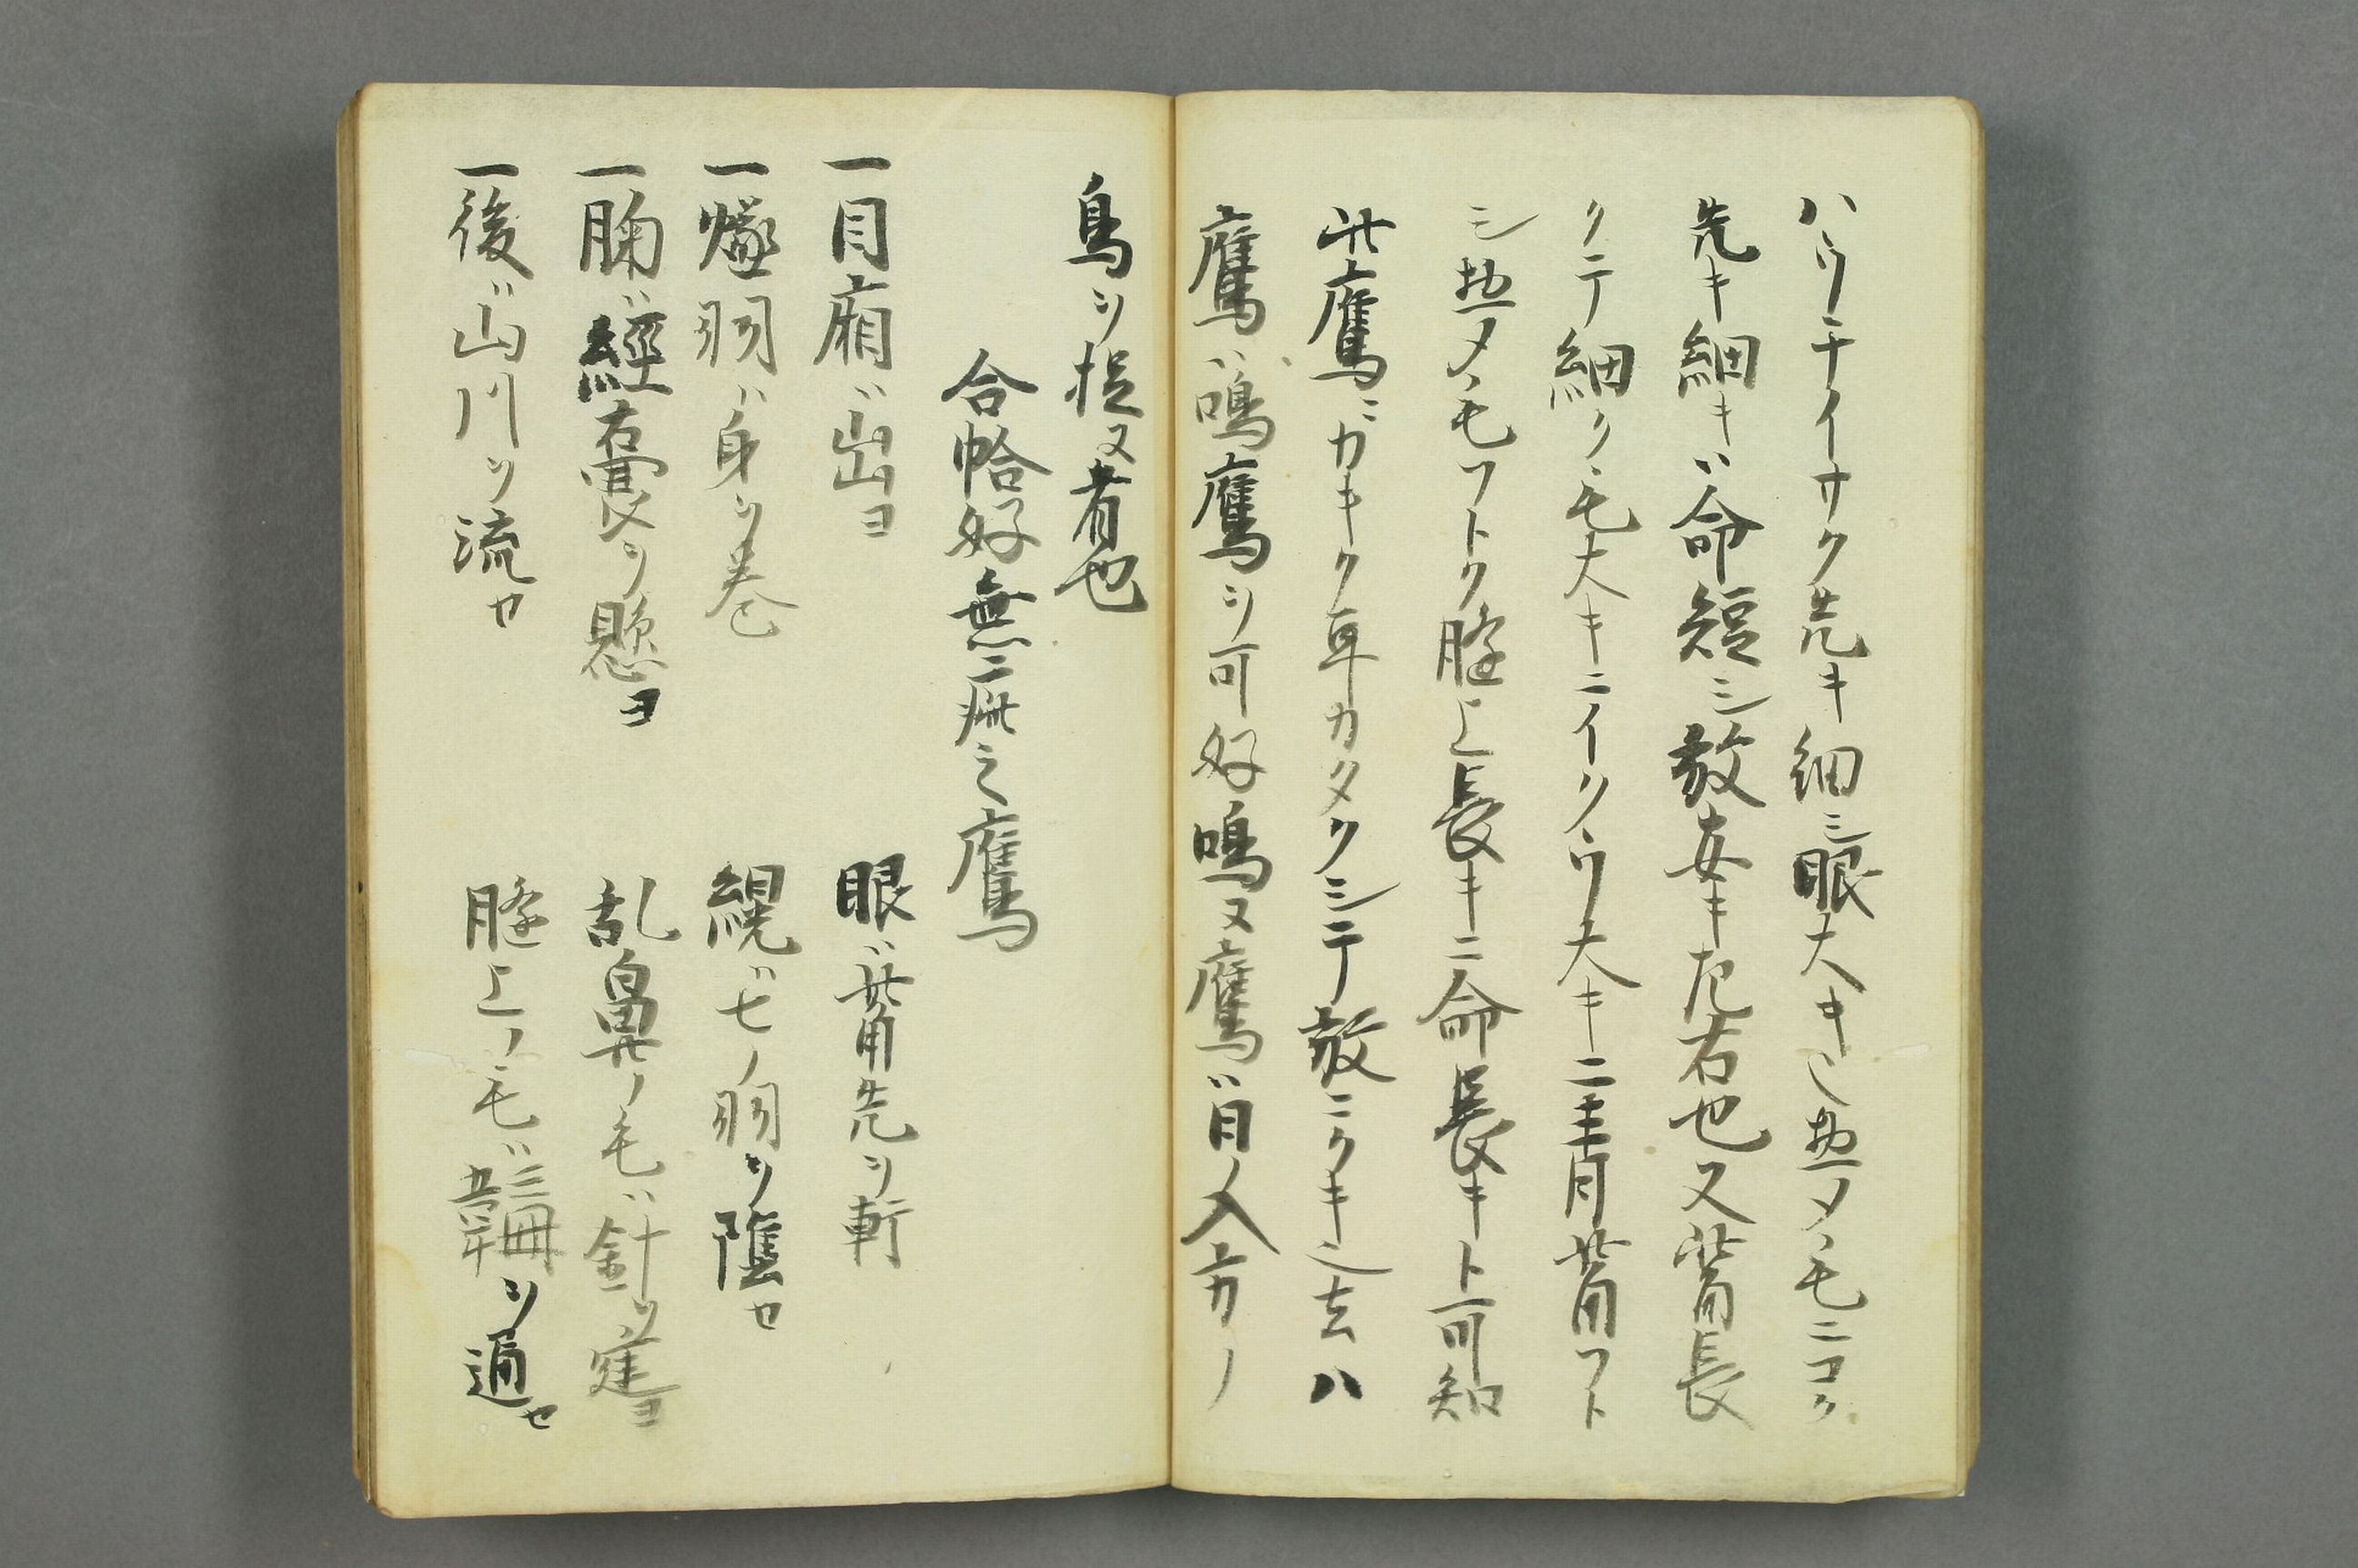 ハウチイサク先キ細シ眼大キ也惣メノ毛ニコク
先キ細キハ命短シ敖安キ左右也又觜長
クテ細ク毛大キニイクウ大キニ青觜フト
シ惣メノ毛フトク膖上長キニ命長キト可知
此鷹ニガキク耳カタクシテ敖ニクキ也去ハ
鷹ハ鳴鷹ヲ可好鳴又鷹ハ日ノ入方ノ
鳥ヲ捉又者也
合恰好無二疵之鷹
一目廂ハ出ヨ
眼ハ觜先ヲ斬
一羽ハ身ヲ巻
緄ハ七ノ羽ヲ隠セ
一胸ハ經右囊ヲ懸ヨ
乱鼻ノ毛ハ針ヲ
一後ハ山川ヲ流セ
膖上ノ毛ハヲ通セ